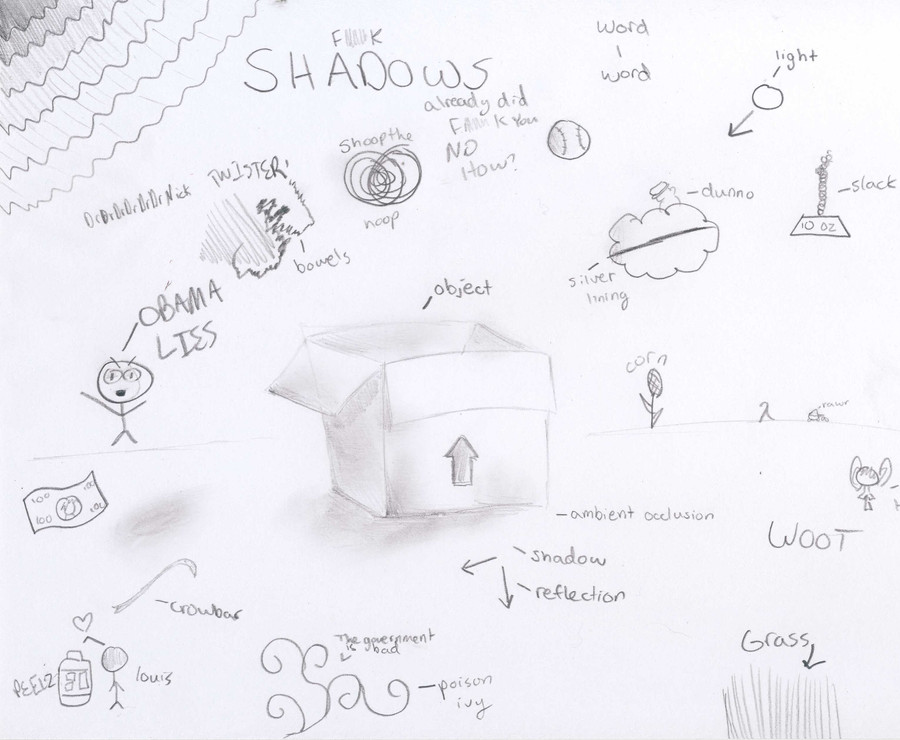 F K
SHADOWS
word
word
light
already did
you
NO
HOW?
Shoop the
noop
TWISTER!
DrDrDrDrDrDrNick
bowels
dunno
slack
10 OZ
silver
lining
object
OBAMA
LIES
corn
rawr
100 100
100 100
ambient occlusion
WOOT
shadow
reflection
crowbar
louis
The government
is bad
poison
ivy
Grass